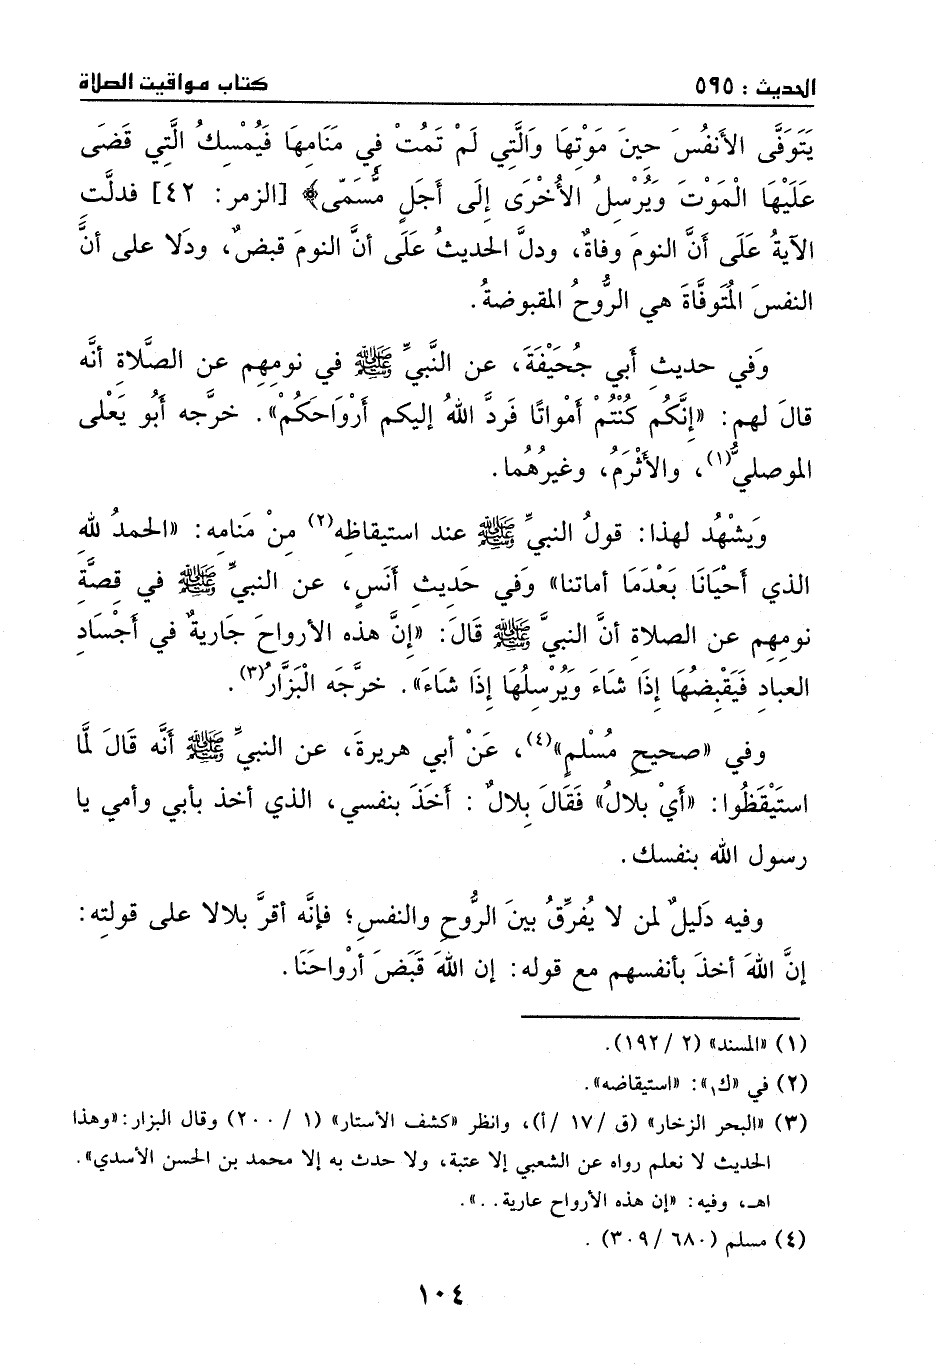 الحديث : ٥٩٥ كتاب مواقيت الصلاة
يَتَوَفَّى الأَنفُسَ حِينَ مَوْتِهَا وَالَّتِي لَمْ تَمُتْ فِي مَنَامِهَا فَيُمْسِكُ الَّتِي قَضَى
عَلَيْهَا الْمَوْتَ وَيُرْسِلُ الأُخْرَى إِلَى أَجَلٍ مُّسَمًّى﴾ [الزمر: ٤٢] فدلَّت
الآيةُ عَلَى أَنَّ النومَ وفاةٌ، ودلَّ الحديثُ عَلَى أنَّ النومَ قبضٌ، ودَلا على أنَّ
النفسَ الْمُتَوفَّاةَ هي الرُّوحُ المقبوضةُ.
وَفي حديثِ أَبي جُحَيْفَةَ، عن النَّبيِّ ﷺ في نومِهِم عن الصَّلاةِ أنَّه
قالَ لهم: «إِنَّكُم كُنْتُمْ أَمْواتًا فَردَّ اللهُ إليكم أَرْوَاحَكُمْ». خرَّجه أَبُو يَعْلى
الموصليُّ(١)، والأَثْرَمُ، وغيرُهُما.
ويَشْهُد لهذا: قولُ النبيِّ ﷺ عند استيقاظه(٢) مِنْ مَنامه: «الحمدُ للهِ
الذي أَحْيَانَا بَعْدَمَا أماتنا» وَفي حَديثِ أَنَسٍ، عن النبيِّ ﷺ في قِصةِ
نومِهِم عن الصلاةِ أنَّ النبيَّ ﷺ قَالَ: «إنَّ هذه الأرواحَ جَاريةٌ في أَجْسَادِ
العبادِ فَيَقْبِضُهَا إِذَا شَاءَ وَيُرْسِلُها إذَا شاءَ». خرَّجَه الْبَزَّارُ(٣).
وفي «صحيحِ مُسْلمٍ»(٤)، عَنْ أبي هريرةَ، عن النبيِّ ﷺ أَنَّه قَالَ لَمَّا
استَيْقَظُوا: «أَيْ بلالُ» فَقَالَ بِلالٌ : أخَذَ بنفسي، الذي أخذ بأبي وأمي يا
رسول الله بنفسك.
وفيه دَليلٌ لمن لا يُفرِّقُ بينَ الرُّوحِ والنفسِ؛ فإنَّه أقرَّ بلالا على قولتِه:
إنَّ اللهَ أخذَ بأنفسهم مع قوله: إن اللهَ قَبَضَ أرْواحَنَا.
(١) «المسند» (٢ / ١٩٢).
(٢) في «ك١»: «استيقاضه».
(٣) «البحر الزخار» (ق / ١٧ / أ)، وانظر «كشف الأستار» (١ / ٢٠٠) وقال البزار: «وهذا
الحديث لا نعلم رواه عن الشعبي إلا عتبة، ولا حدث به إلا محمد بن الحسن الأسدي».
اهـ، وفيه: «إن هذه الأرواح عارية . .».
(٤) مسلم (٦٨٠ / ٣٠٩) .
١٠٤